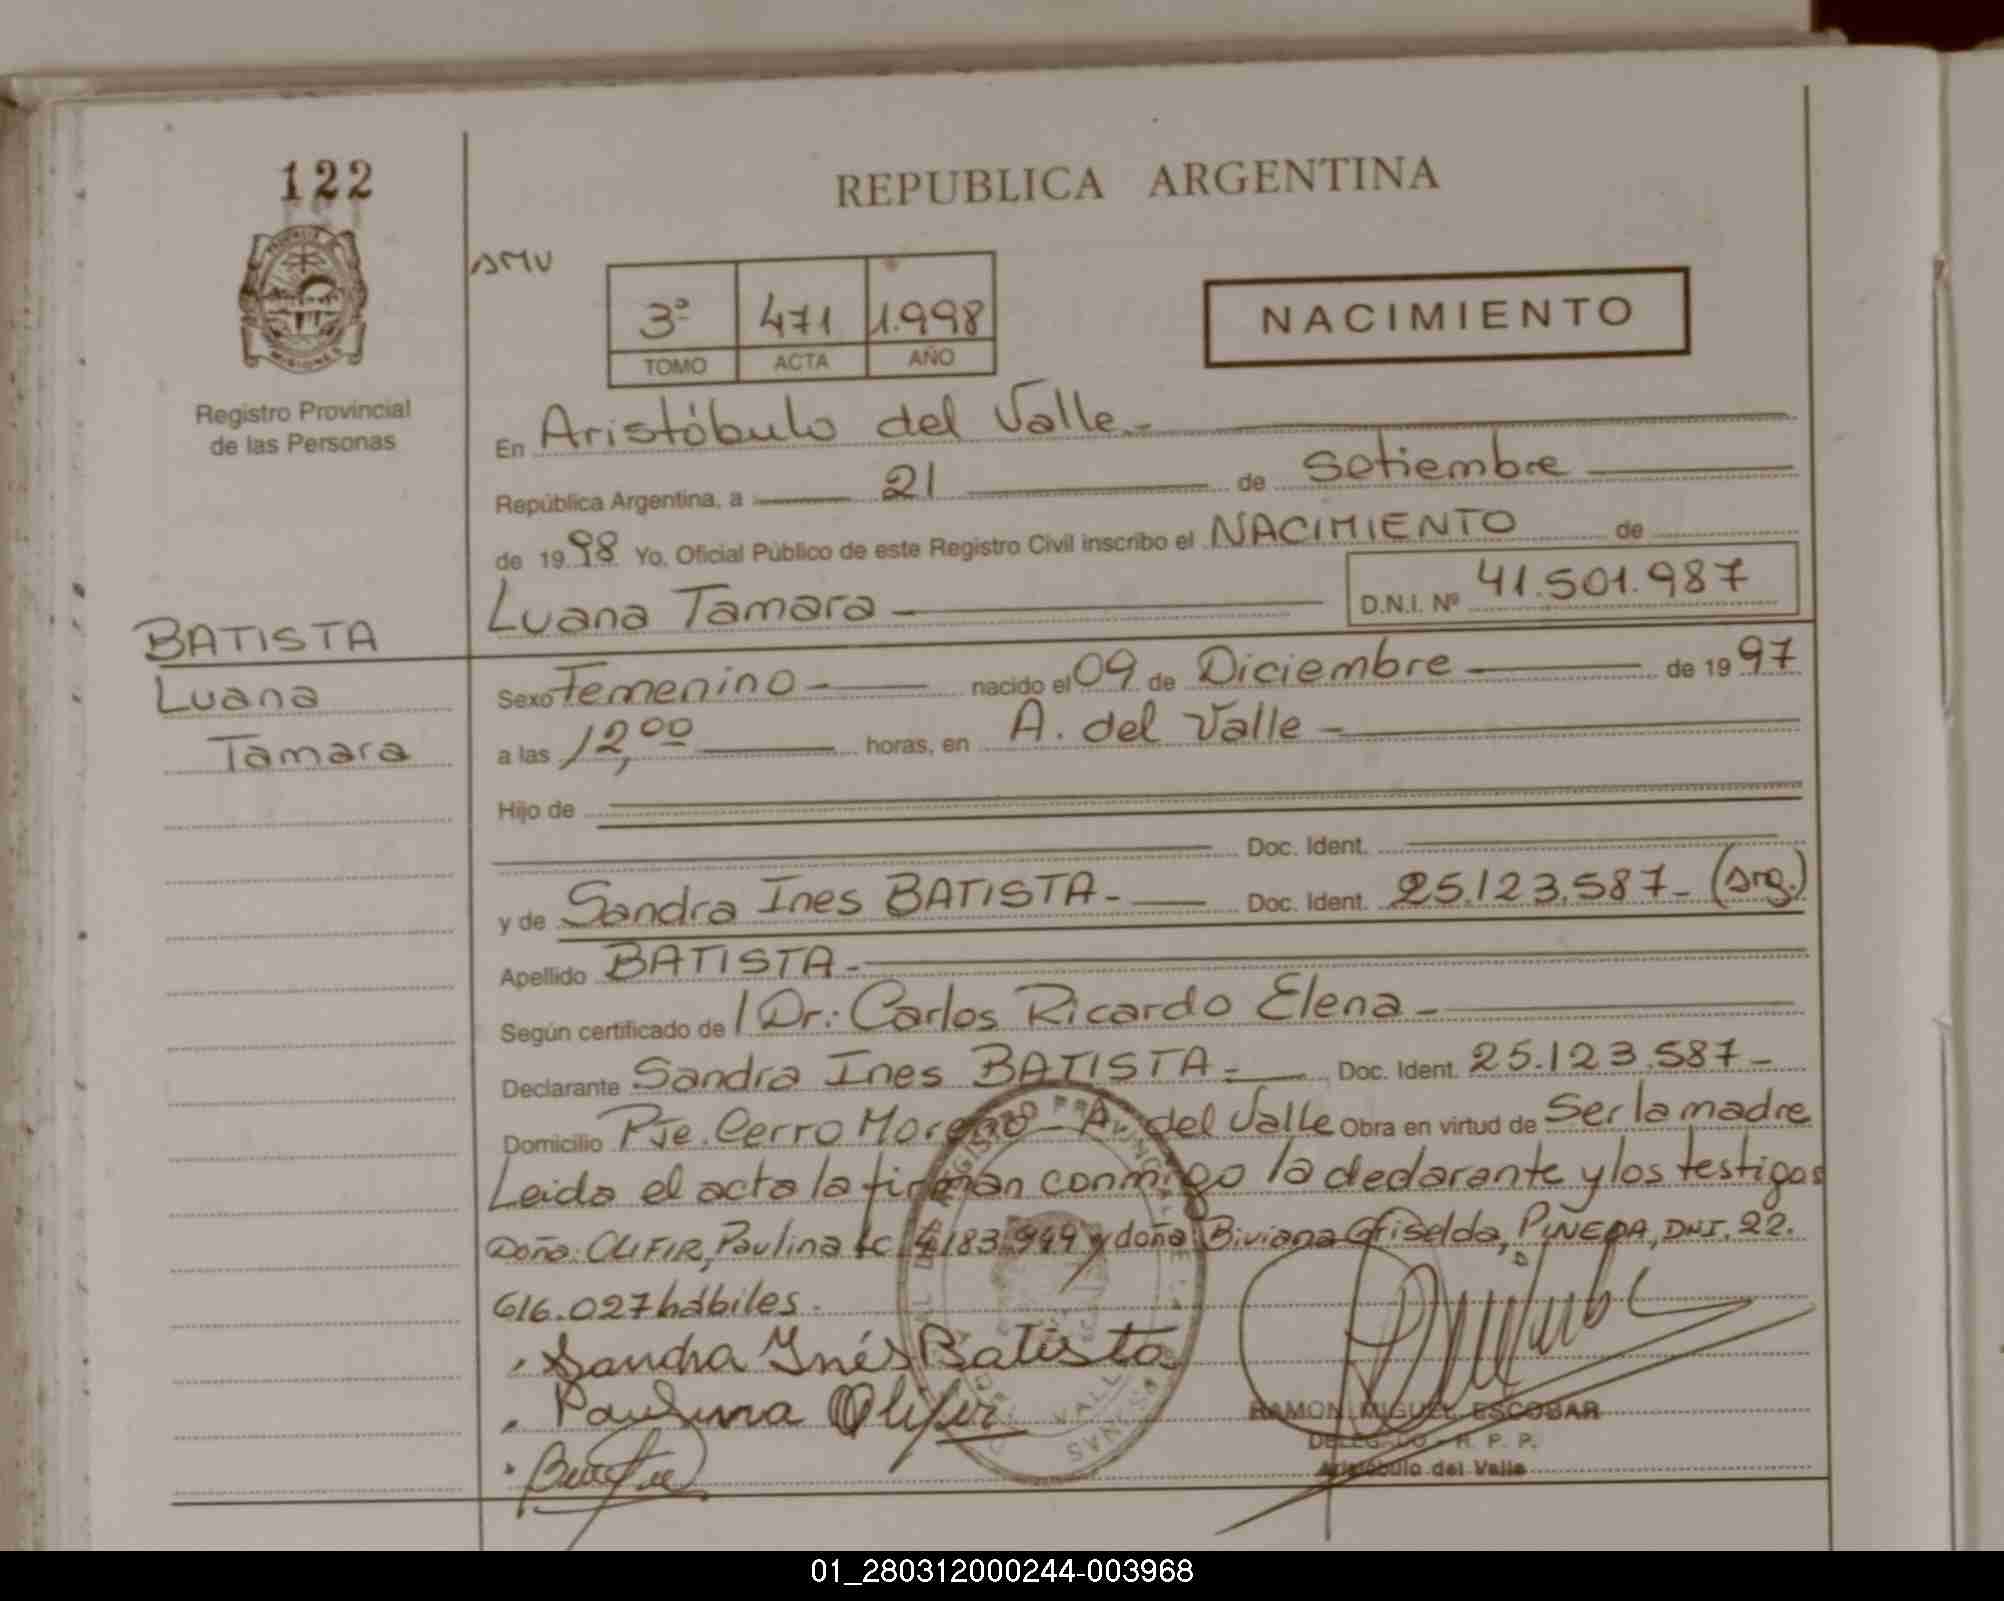 122
REPUBLICA ARGENTINA
MISIONES
Registro Provincial
de las Personas
3º 471 1.998
TOMO ACTA AÑO
NACIMIENTO
En Aristóbulo del Valle.-
República Argentina, a 21 de Setiembre
de 19 98 Yo, Oficial Público de este Registro Civil inscribo el NACIMIENTO de
Luana Tamara - D.N.I. Nº 41.501.987
BATISTA
Luana
Tamara
Sexo Femenino - nacido el 09 de Diciembre de 19 97
a las 12,00 horas, en A. del Valle -
Hijo de
Doc. Ident.
y de Sandra Ines BATISTA - Doc. Ident. 25.123.587- (Arg.)
Apellido BATISTA -
Según certificado de Dr.: Carlos Ricardo Elena -
Declarante Sandra Ines BATISTA - Doc. Ident. 25.123.587-
Domicilio Pje. Cerro Moreno - A. del Valle Obra en virtud de Ser la madre
Leida el acta la firman conmigo la declarante y los testigos
Doña: OLIFIR, Paulina LC 4.183.949 y doña Biviana Griselda, PIÑEDA, DNI. 22.
616.027 hábiles.
Sandra Inés Batista
Paulina Olifir
RAMON MIGUEL ESCOBAR
DELEGADO - R. P. P.
Aristóbulo del Valle
01_280312000244-003968